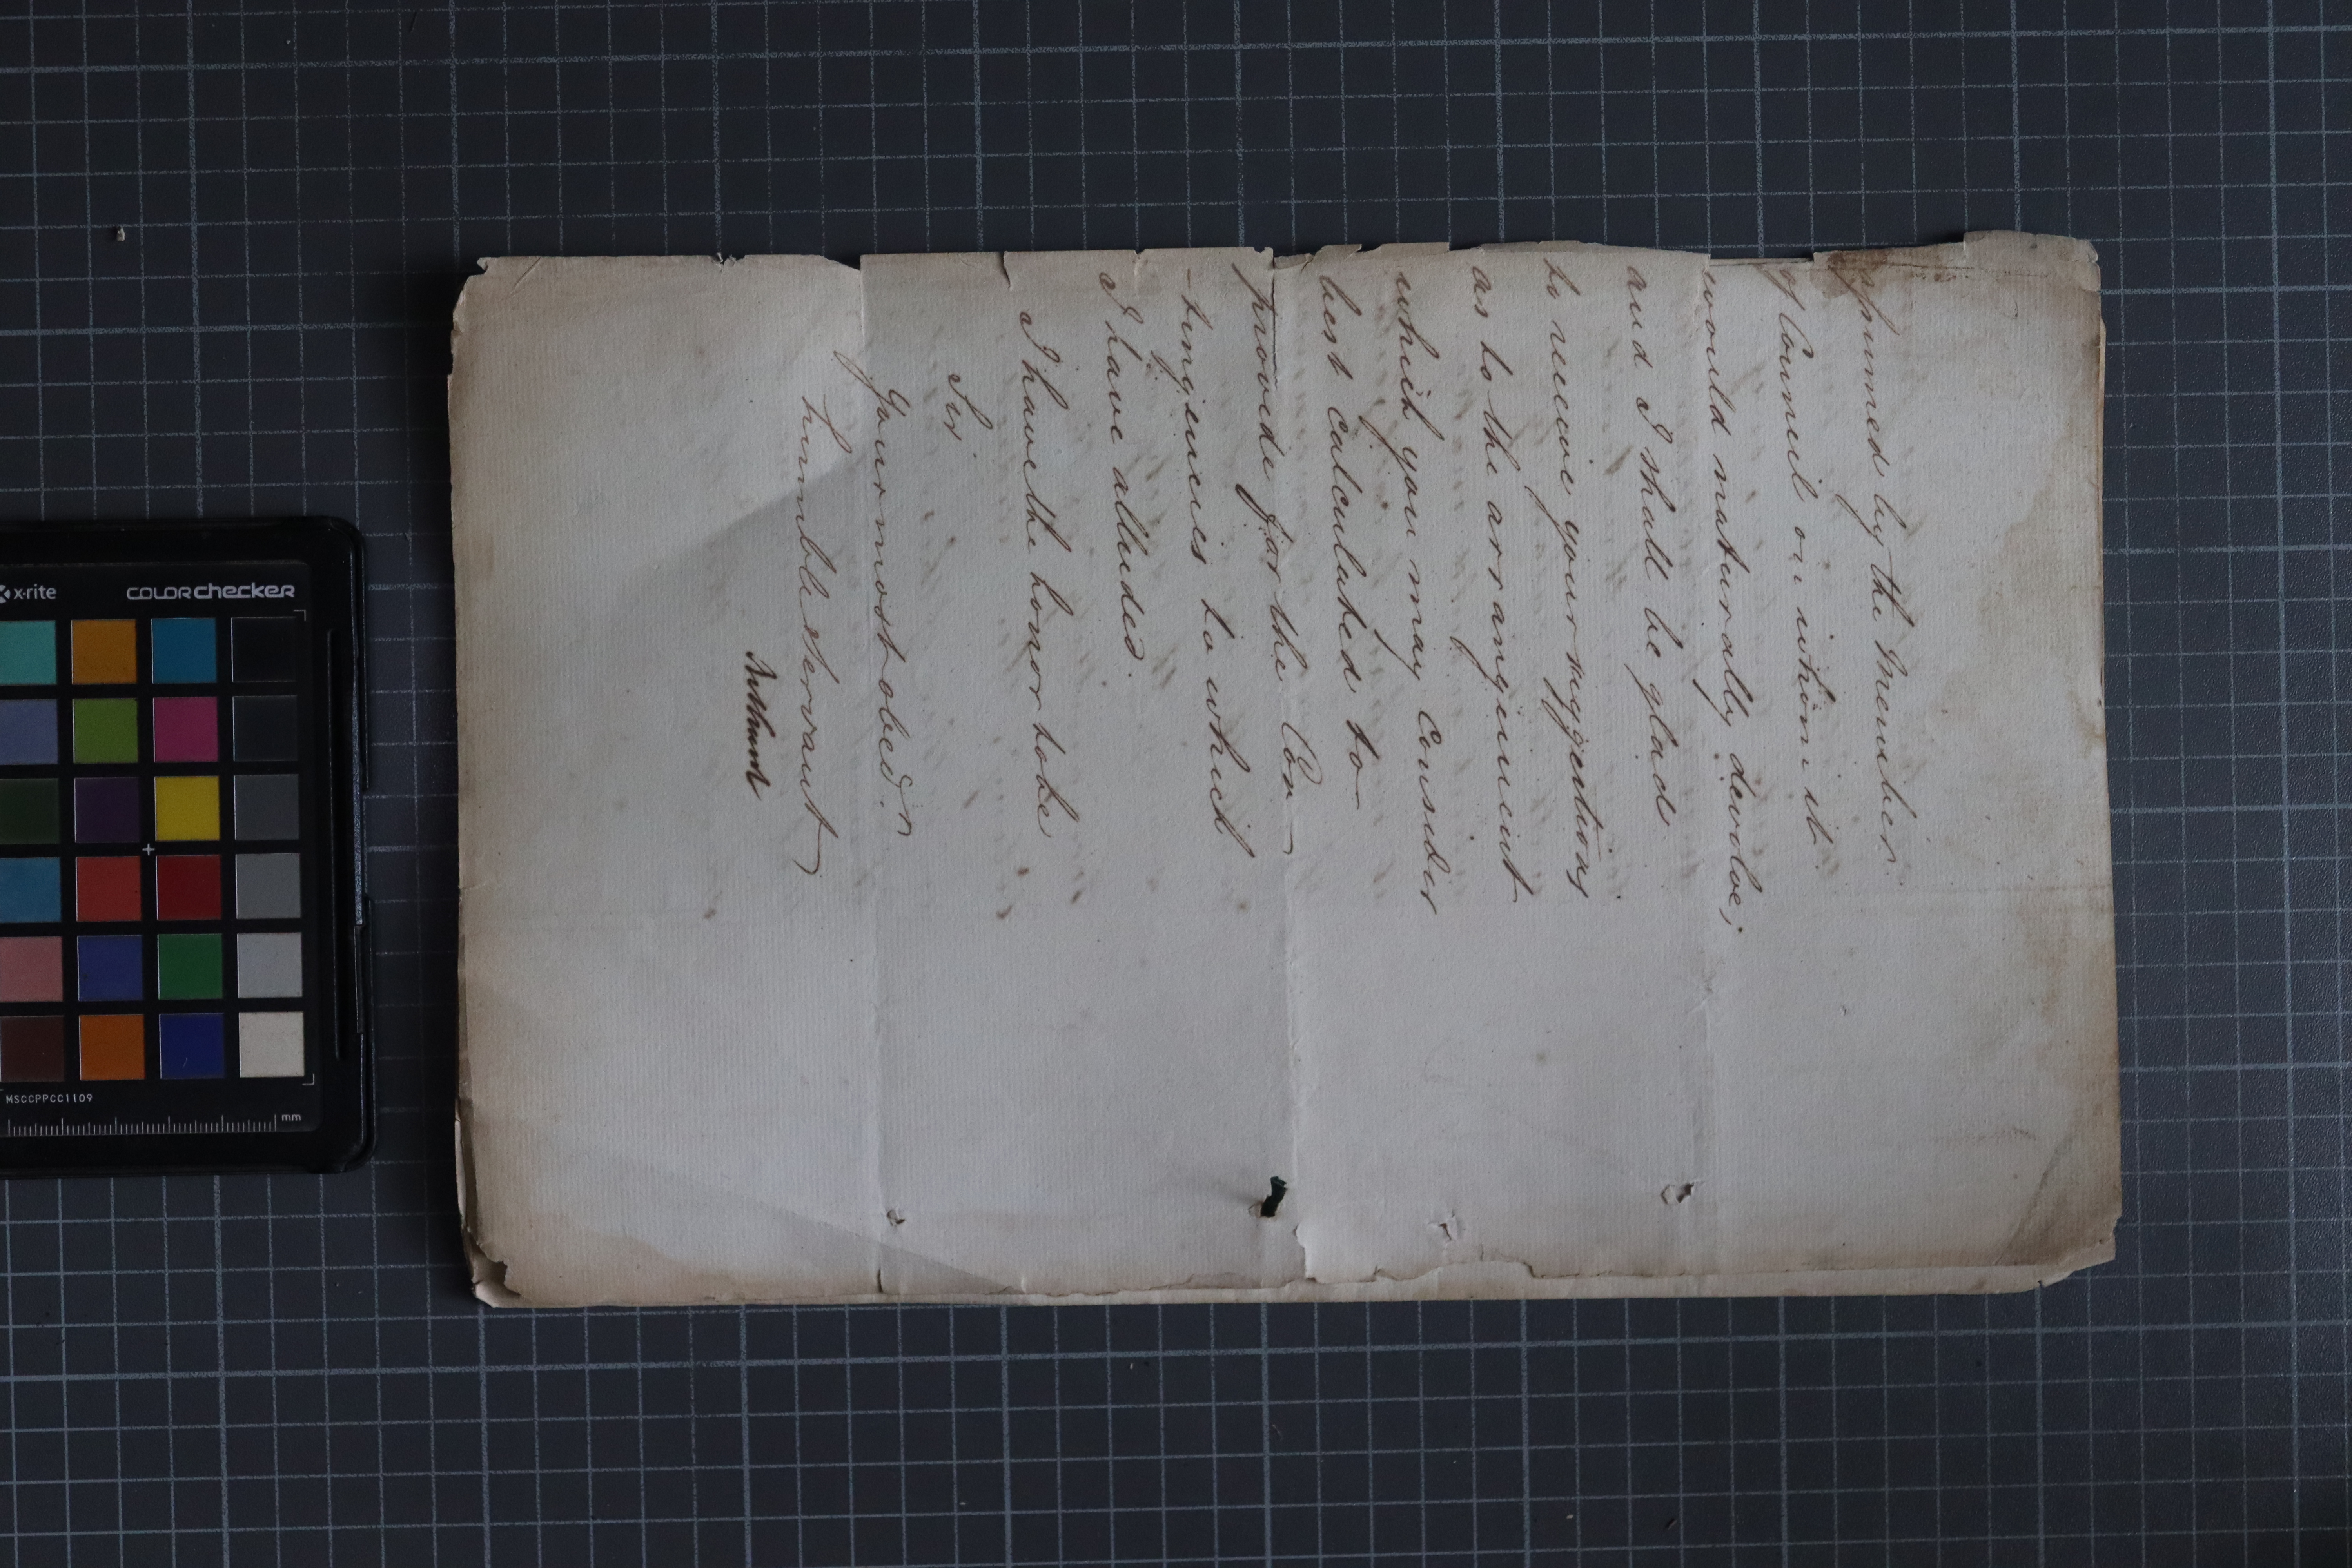 assumed by the Member
of Council on whom it
would naturally devolve;
and I shall be glad
to receive your suggestions
as to the arrangement
which you may Consider
best Calculated to
provide for the Con
-tingencies to which
I have alluded.
I have the honor to be
Sir
Your most obed.
humble servant
x-rite
COLORchecker
MSCCPPCC1109
mm